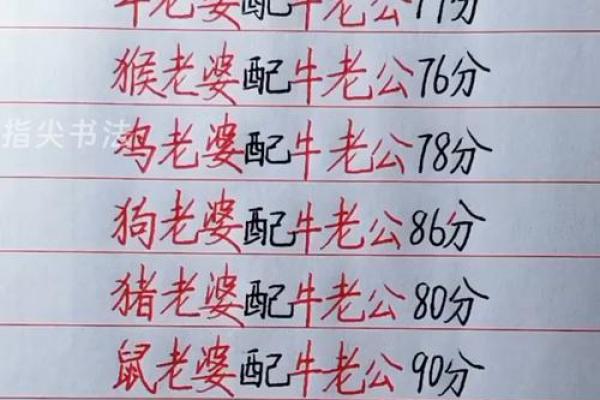 老婆配牛老公
猴老婆配牛老公76分
指尖书法
鸡老婆配牛老公78分
狗老婆配牛老公86分
猪老婆配牛老公80分
鼠老婆配牛老公90分